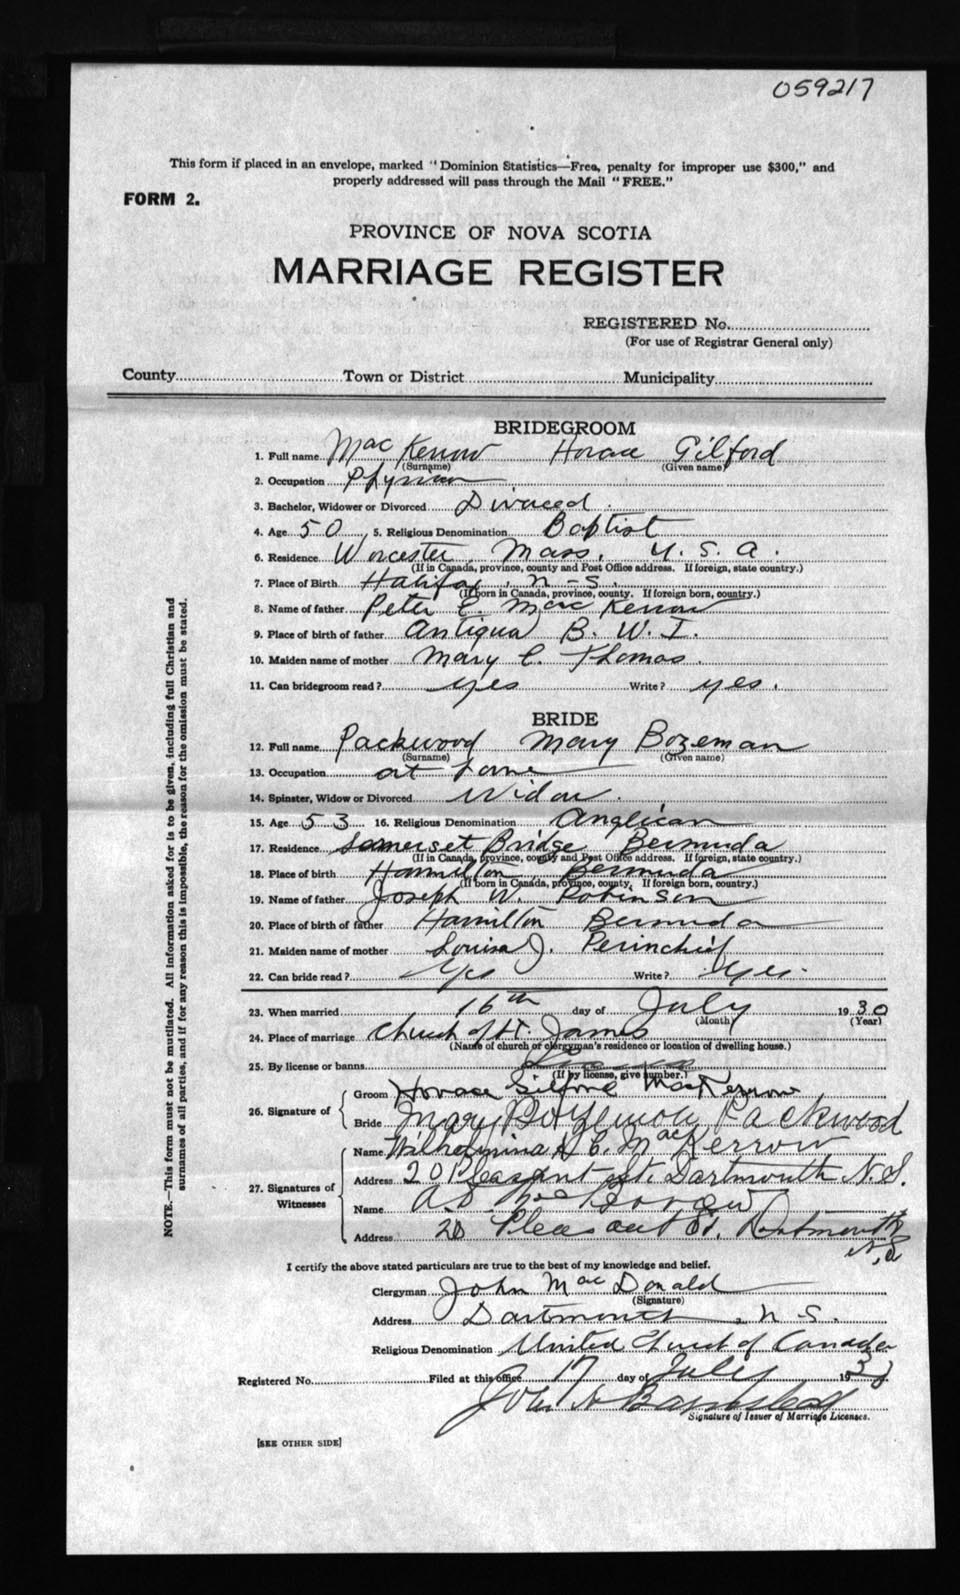 059217
This form if placed in an envelope, marked "Dominion Statistics—Free, penalty for improper use $300," and
properly addressed will pass through the Mail "FREE."
FORM 2.
PROVINCE OF NOVA SCOTIA
MARRIAGE REGISTER
REGISTERED No.
(For use of Registrar General only)
County Town or District Municipality
BRIDEGROOM
1. Full name MacKerrow Horace Gilford
(Surname) (Given name)
2. Occupation Physician
3. Bachelor, Widower or Divorced Divorced.
4. Age 50 5. Religious Denomination Baptist
6. Residence Worcester Mass. U.S.A.
(If in Canada, province, county and Post Office address. If foreign, state country.)
7. Place of Birth Halifax, N-S.
(If born in Canada, province, county. If foreign born, country.)
8. Name of father Peter E. MacKerrow
9. Place of birth of father Antigua B. W. I.
10. Maiden name of mother Mary C. Thomas.
11. Can bridegroom read? yes Write? yes.
BRIDE
12. Full name Packwood Mary Bozeman
(Surname) (Given name)
13. Occupation at home
14. Spinster, Widow or Divorced Widow.
15. Age 53 16. Religious Denomination Anglican
17. Residence Somerset Bridge Bermuda
(If in Canada, province, county and Post Office address. If foreign, state country.)
18. Place of birth Hamilton, Bermuda
(If born in Canada, province, county. If foreign born, country.)
19. Name of father Joseph W. Robinson
20. Place of birth of father Hamilton Bermuda
21. Maiden name of mother Louisa J. Perinchief
22. Can bride read? Yes Write? Yes.
23. When married 16th day of July 1930
(Month) (Year)
24. Place of marriage Church of St. James
(Name of church or clergyman's residence or location of dwelling house.)
25. By license or banns License
(If by license, give number.)
26. Signature of
Groom Horace Gilford MacKerrow
Bride Mary Bozeman Packwood
27. Signatures of Witnesses
Name Wilhelmina H. C. MacKerrow
Address 20 Pleasant St. Dartmouth N.S.
Name MacKerrow
Address 20 Pleasant St. Dartmouth
N.S
I certify the above stated particulars are true to the best of my knowledge and belief.
Clergyman John MacDonald
(Signature)
Address Dartmouth, N-S.
Religious Denomination United Church of Canada
Registered No. Filed at this office 17 day of July 1930
John
Signature of Issuer of Marriage Licenses.
[SEE OTHER SIDE]
NOTE.—This form must not be mutilated. All information asked for is to be given, including full Christian and
surnames of all parties, and if for any reason this is impossible, the reason for the omission must be stated.